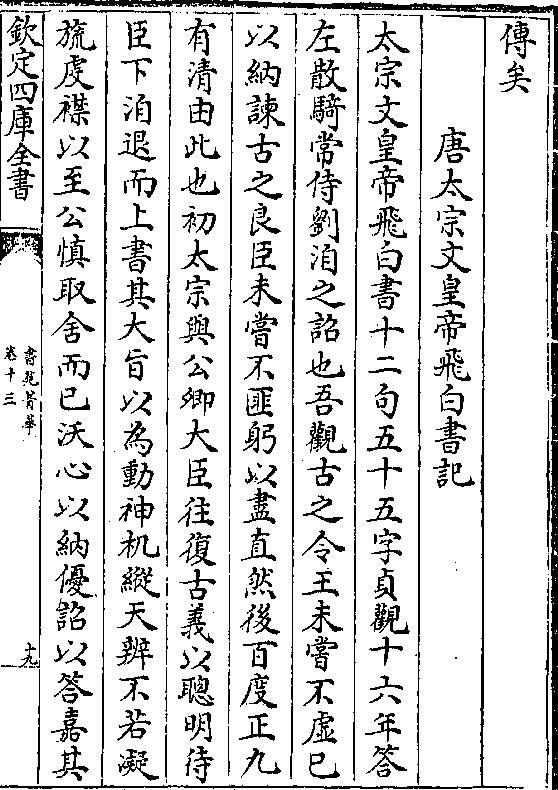 傳矣
唐太宗文皇帝飛白書記
太宗文皇帝飛白書十二句五十五字貞觀十六年答
左散騎常侍劉洎之詔也吾觀古之令王未嘗不虛已
以納諫古之良臣未嘗不匪躬以盡直然後百度正九
有清由此也初太宗與公卿大臣往復古義以聰明待
臣下洎退而上書其大旨以為動神机縱天辨不若凝
旒虔襟以至公慎取舍而已沃心以納優詔以答嘉其
欽定四庫全書
書苑菁華
卷十三
十九